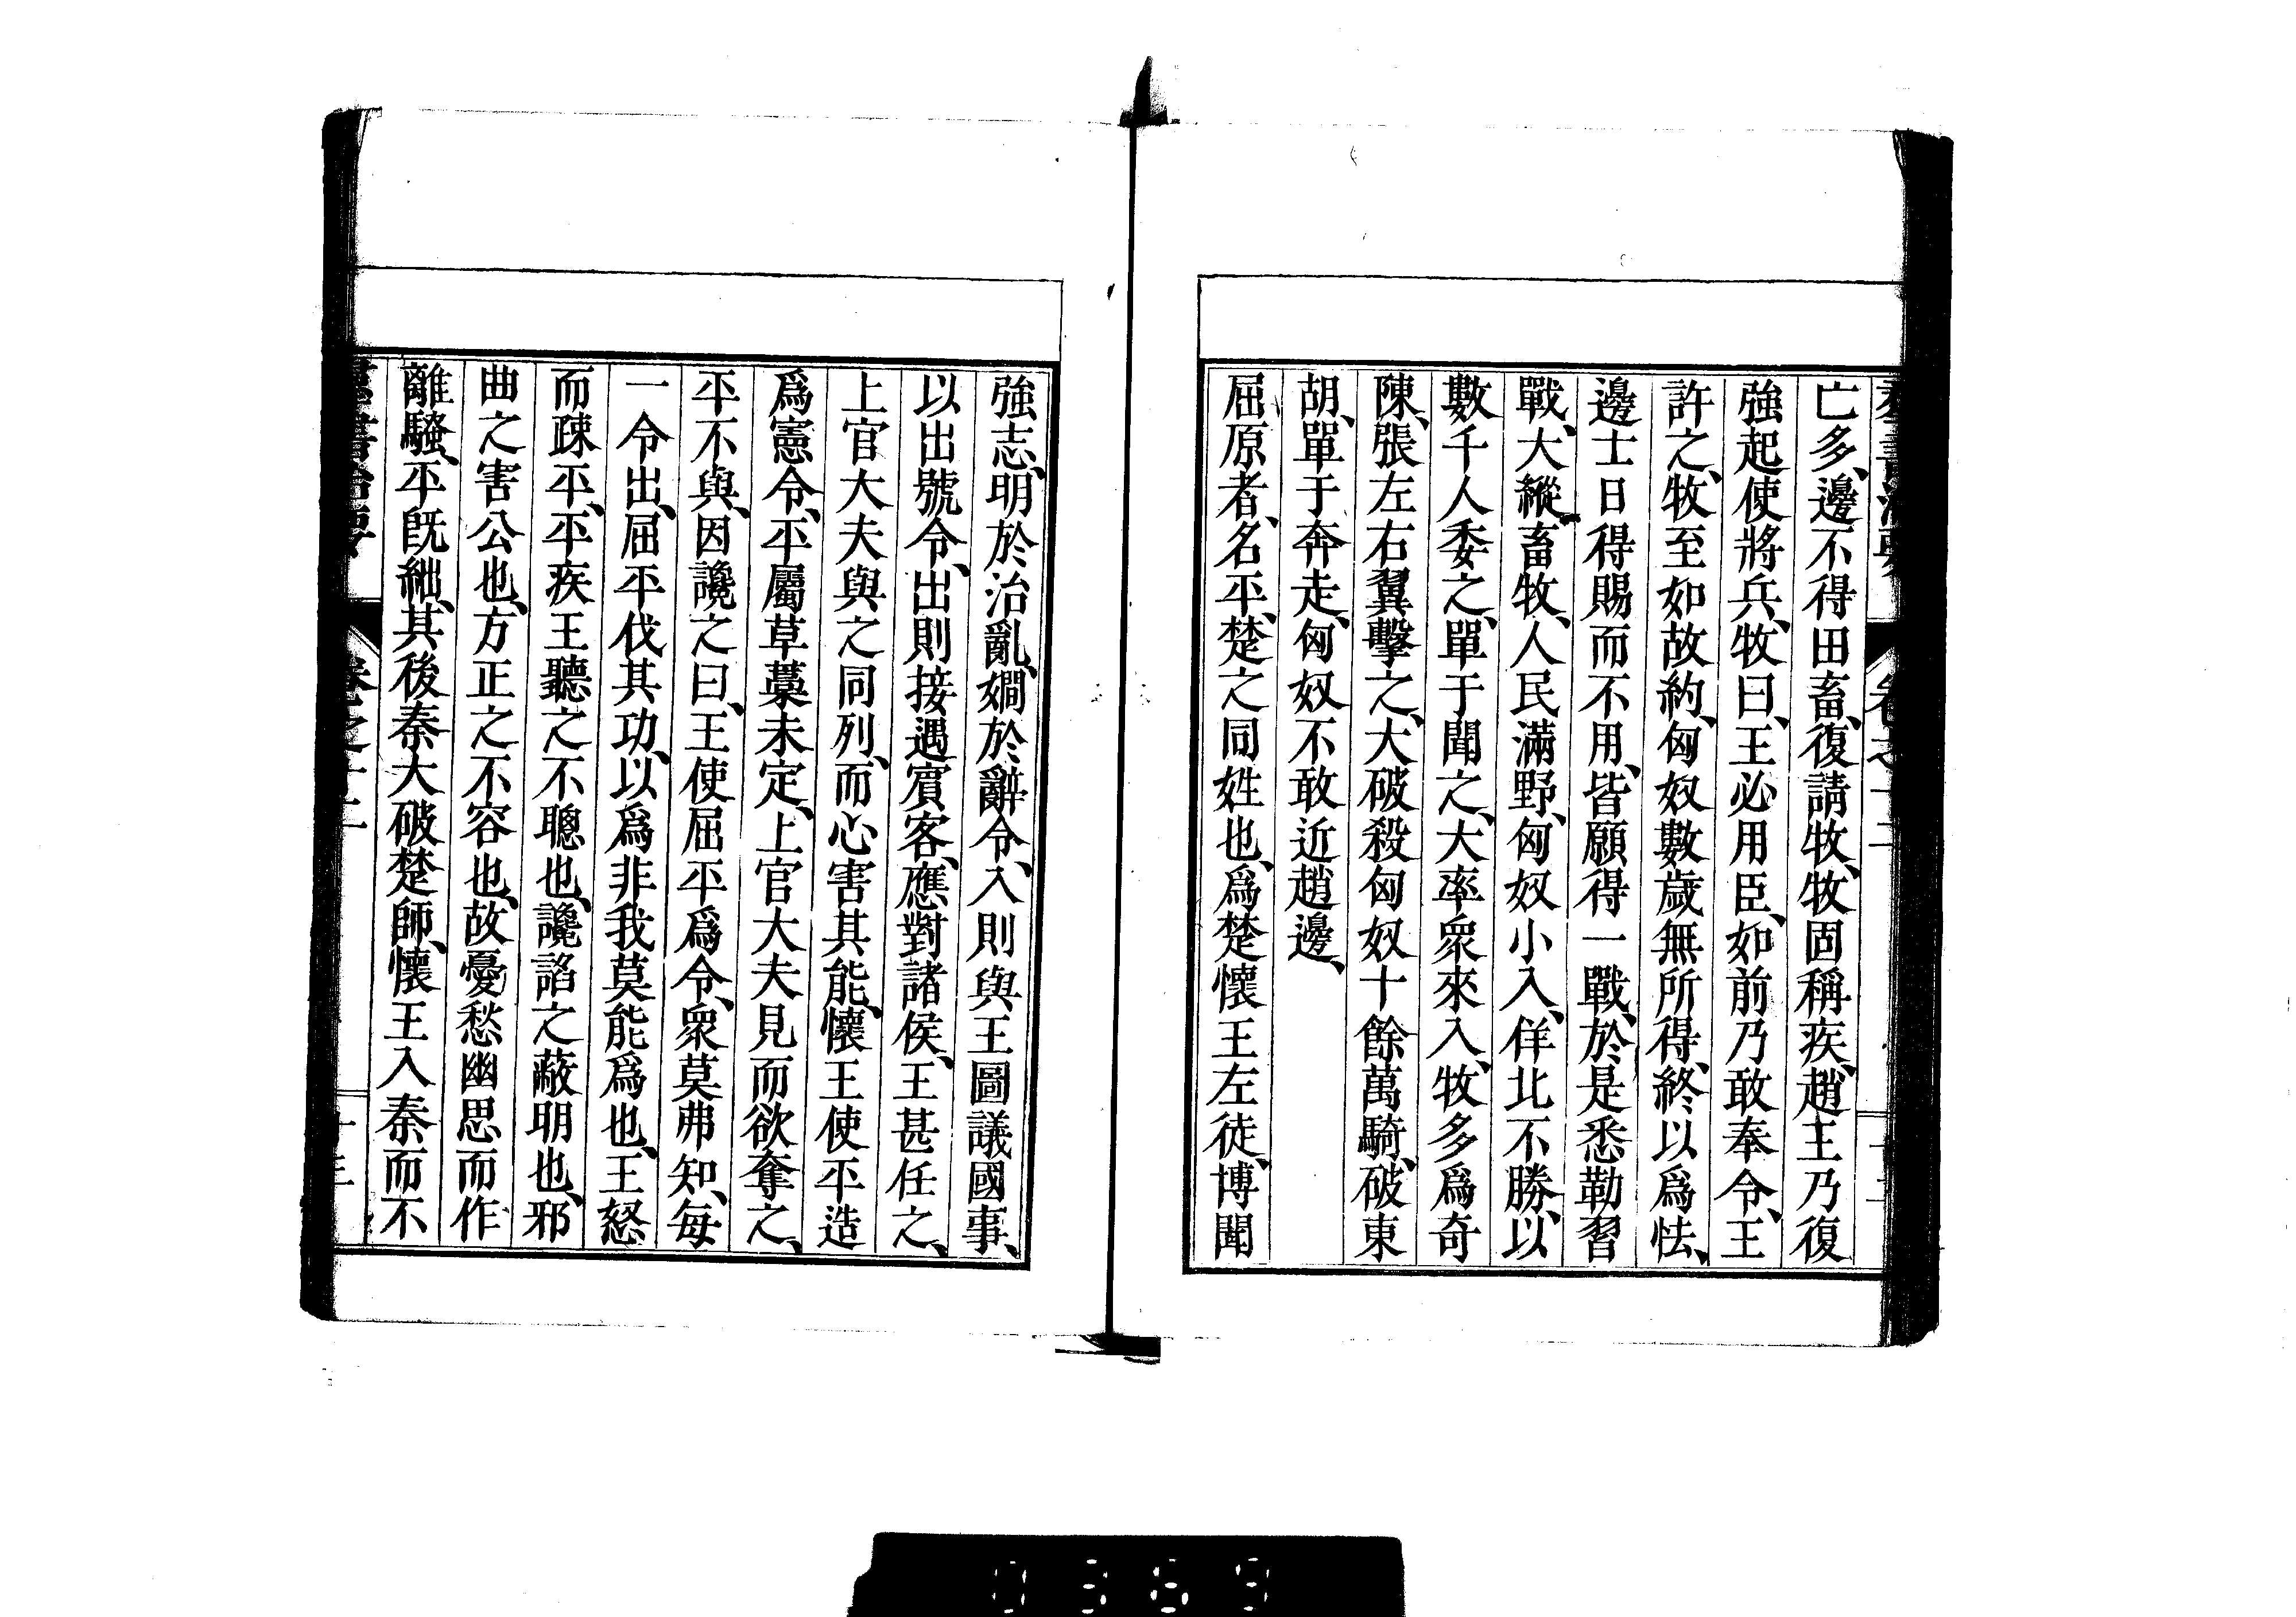 亡多、邊不得田畜、復請牧、牧固稱疾、趙王乃復
強起使將兵、牧曰、王必用臣、如前乃敢奉令、王
許之、牧至如故約、匈奴數歲無所得、終以爲怯、
邊士日得賜而不用、皆願得一戰、於是悉勒習
戰、大縱畜牧、人民滿野、匈奴小入、佯北不勝、以
數千人委之、單于聞之、大率衆來入、牧多爲奇
陳、張左右翼擊之、大破殺匈奴十餘萬騎、破東
胡、單于奔走、匈奴不敢近趙邊、
屈原者、名平、楚之同姓也、爲楚懷王左徒、博聞
強志、明於治亂、嫺於辭令、入則與王圖議國事、
以出號令、出則接遇賓客、應對諸侯、王甚任之、
上官大夫與之同列、而心害其能、懷王使平造
爲憲令、平屬草藁未定、上官大夫見而欲奪之、
平不與、因讒之曰、王使屈平爲令、衆莫弗知、每
一令出、屈平伐其功、以爲非我莫能爲也、王怒
而疎平、平疾王聽之不聰也、讒諂之蔽明也、邪
曲之害公也、方正之不容也、故憂愁幽思而作
離騷、平旣絀、其後秦大破楚師、懷王入秦而不
0369